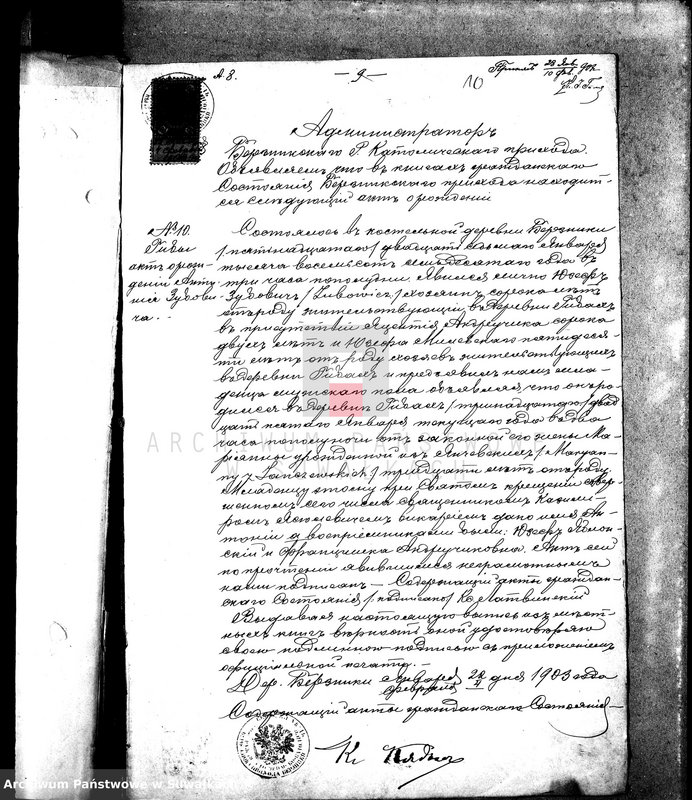 А 8.
— 9 —
10
Администраторъ
Березникскаго Р. Католическаго прихода.
Объявляетъ что въ книгахъ гражданскаго
Состоянія Березникскаго прихода находит-
ся слѣдующій актъ о рожденіи
№ 10.
Гибы
актъ о рож-
деніи Анто-
нія Зубови-
ча.
Состоялось въ костельной деревни Березники
/пятнадцатаго/ двадцать седьмаго Января
тысяча восемьсотъ семьдесятаго года въ
три часа пополудни. Явился лично Юзефъ
Зубовичъ /Zubowicz/ хозяинъ сорока лѣтъ
отъ роду жительствующій въ деревни Гибахъ
въ присутствіи Яцентія Андручика сорока
двухъ лѣтъ и Юзефа Милевскаго пятидеся-
ти лѣтъ отъ роду хозяевъ жительствующихъ
въ деревни Гибахъ и предъявилъ намъ мла-
денца мужскаго пола объявляя что онъ ро-
дился въ деревни Гибахъ /тринадцатаго/ двад-
цать пятаго Января текущаго года въ два
часа пополуночи отъ законной его жены Ма-
ріянны урожденной изъ Янчевскихъ /Maryan-
ny z Janczewskich/ тридцати лѣтъ отъ роду.
Младенцу этому при Святомъ крещеніи совер-
шенномъ сего числа священникомъ Казими-
ромъ викаріемъ дано имя Ан-
тоній а воспріемниками были: Юзефъ
и Францишка Андручиковна. Актъ сей
по прочтеніи явившимися неграмотными
нами подписанъ — Содержащій акты граждан-
скаго Состоянія /подписано/ Кс Матвинскій
Выдавая настоящую выпись изъ мѣст-
ныхъ книгъ вѣрность оной удостовѣряю
своею подлинною подписью съ приложеніемъ
оффиціальной печати. —
Дер. Березники Января Февраля дня 1903 года
Содержащій акты гражданскаго Состоянія —
Кс
ARCHIWUM PAŃSTWOWE
W SUWAŁKACH
Archiwum Państwowe w Suwałkach